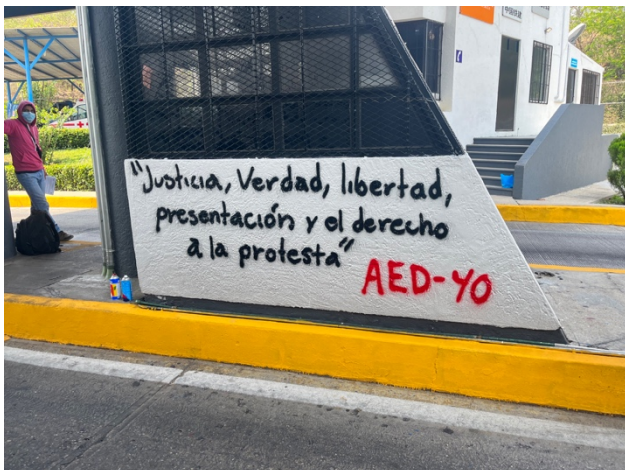 "Justicia, Verdad, libertad,
presentación y el derecho
a la protesta"
AED-YO